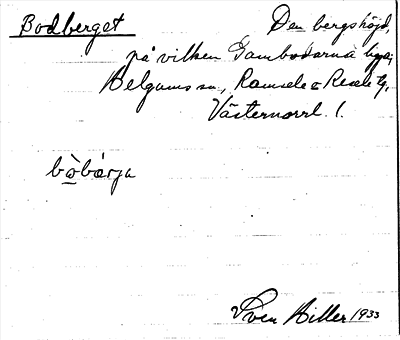 Bodberget
Den bergshöjd,
på vilken Gambodarna ligga;
Helgums sn, Ramsele o Resele tg,
Västernorrl. l.
bòbærja
Sven Hiller 1933